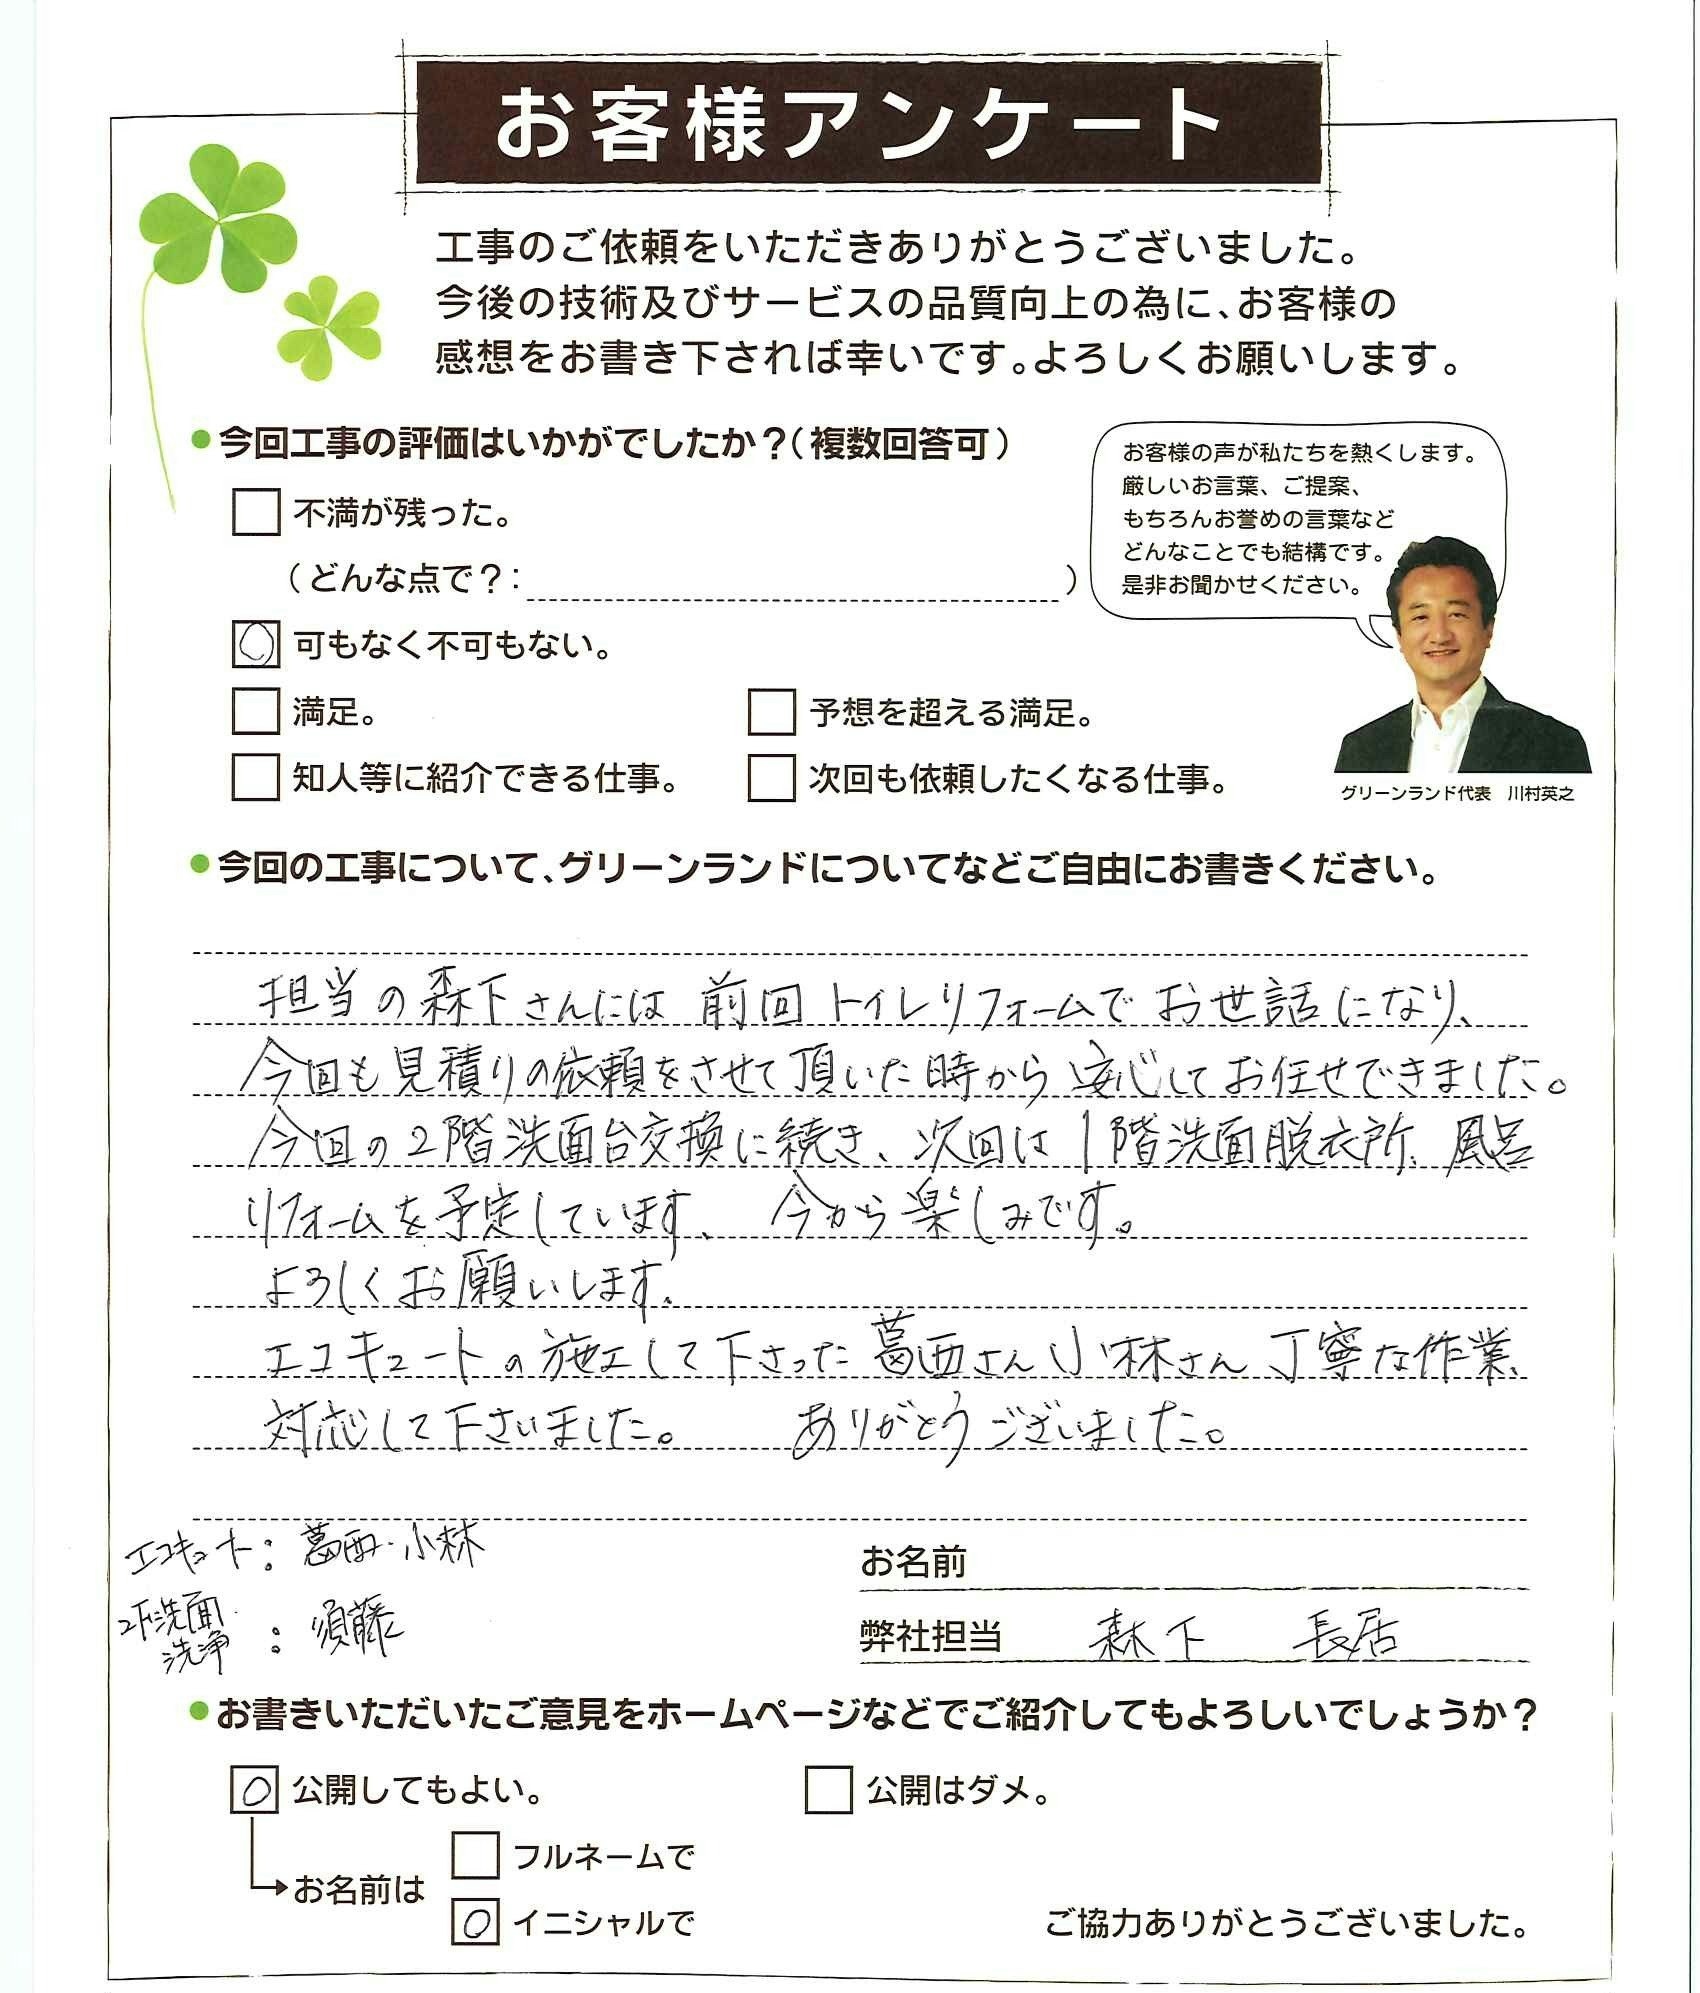 お客様アンケート
工事のご依頼をいただきありがとうございました。
今後の技術及びサービスの品質向上の為に、お客様の
感想をお書き下されば幸いです。よろしくお願いします。
●今回工事の評価はいかがでしたか？（複数回答可）
不満が残った。
（どんな点で？：　）
可もなく不可もない。
満足。
予想を超える満足。
知人等に紹介できる仕事。
次回も依頼したくなる仕事。
お客様の声が私たちを熱くします。
厳しいお言葉、ご提案、
もちろんお誉めの言葉など
どんなことでも結構です。
是非お聞かせください。
グリーンランド代表　川村英之
●今回の工事について、グリーンランドについてなどご自由にお書きください。
担当の森下さんには 前回トイレリフォームで お世話になり、
今回も見積りの依頼をさせて頂いた時から 安心してお任せできました。
今回の2階洗面台交換に続き、次回は1階洗面脱衣所、風呂
リフォームを予定しています、今から楽しみです。
よろしくお願いします。
エコキュートの施工して下さった葛西さん小林さん 丁寧な作業、
対応して下さいました。 ありがとうございました。
エコキュート：葛西・小林
2F洗面
洗浄：須藤
お名前
弊社担当 森下 長居
●お書きいただいたご意見をホームページなどでご紹介してもよろしいでしょうか？
〇 公開してもよい。
公開はダメ。
お名前は
フルネームで
〇 イニシャルで
ご協力ありがとうございました。